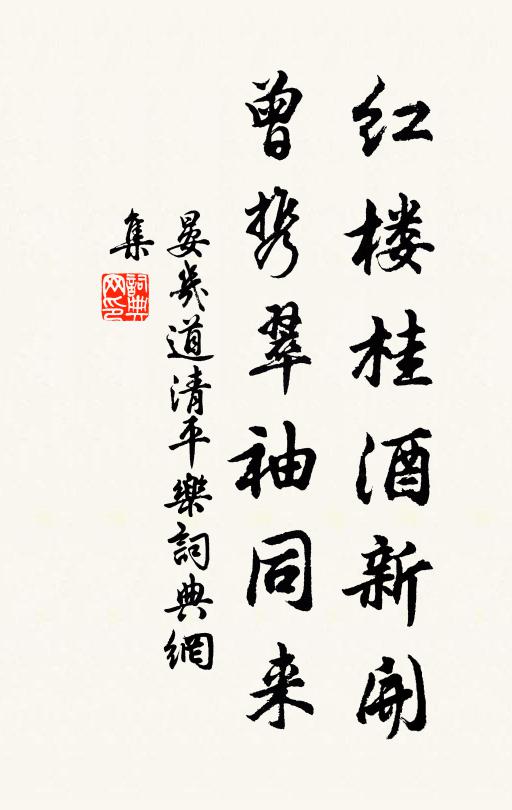 红楼桂酒新開
曾携翠袖同来
晏幾道清平樂詞典網
集
詞典
网印